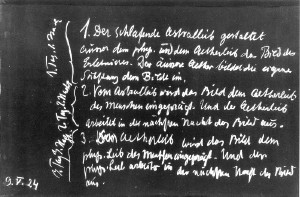 1. Der schlafende Astralleib gestaltet
ausser dem phys. und dem Aetherleib das Bild des
Erlebnisses. Der äussere Aether bildet die eigene
dem Bilde ein.
2. Vom Astralleib wird das Bild dem Aetherleib
des Menschen eingeprägt. Und der Aetherleib
arbeitet in der nächsten Nacht das Bild aus.
3. Vom Aetherleib wird das Bild dem
phys. Leib des Menschen eingeprägt. Und der
phys. Leib arbeitet in der nächsten Nacht das Bild
aus.
1. Tag, 1. Nacht
2. Tag, 2. Nacht
3. Tag, 3. Nacht
9. V. 24